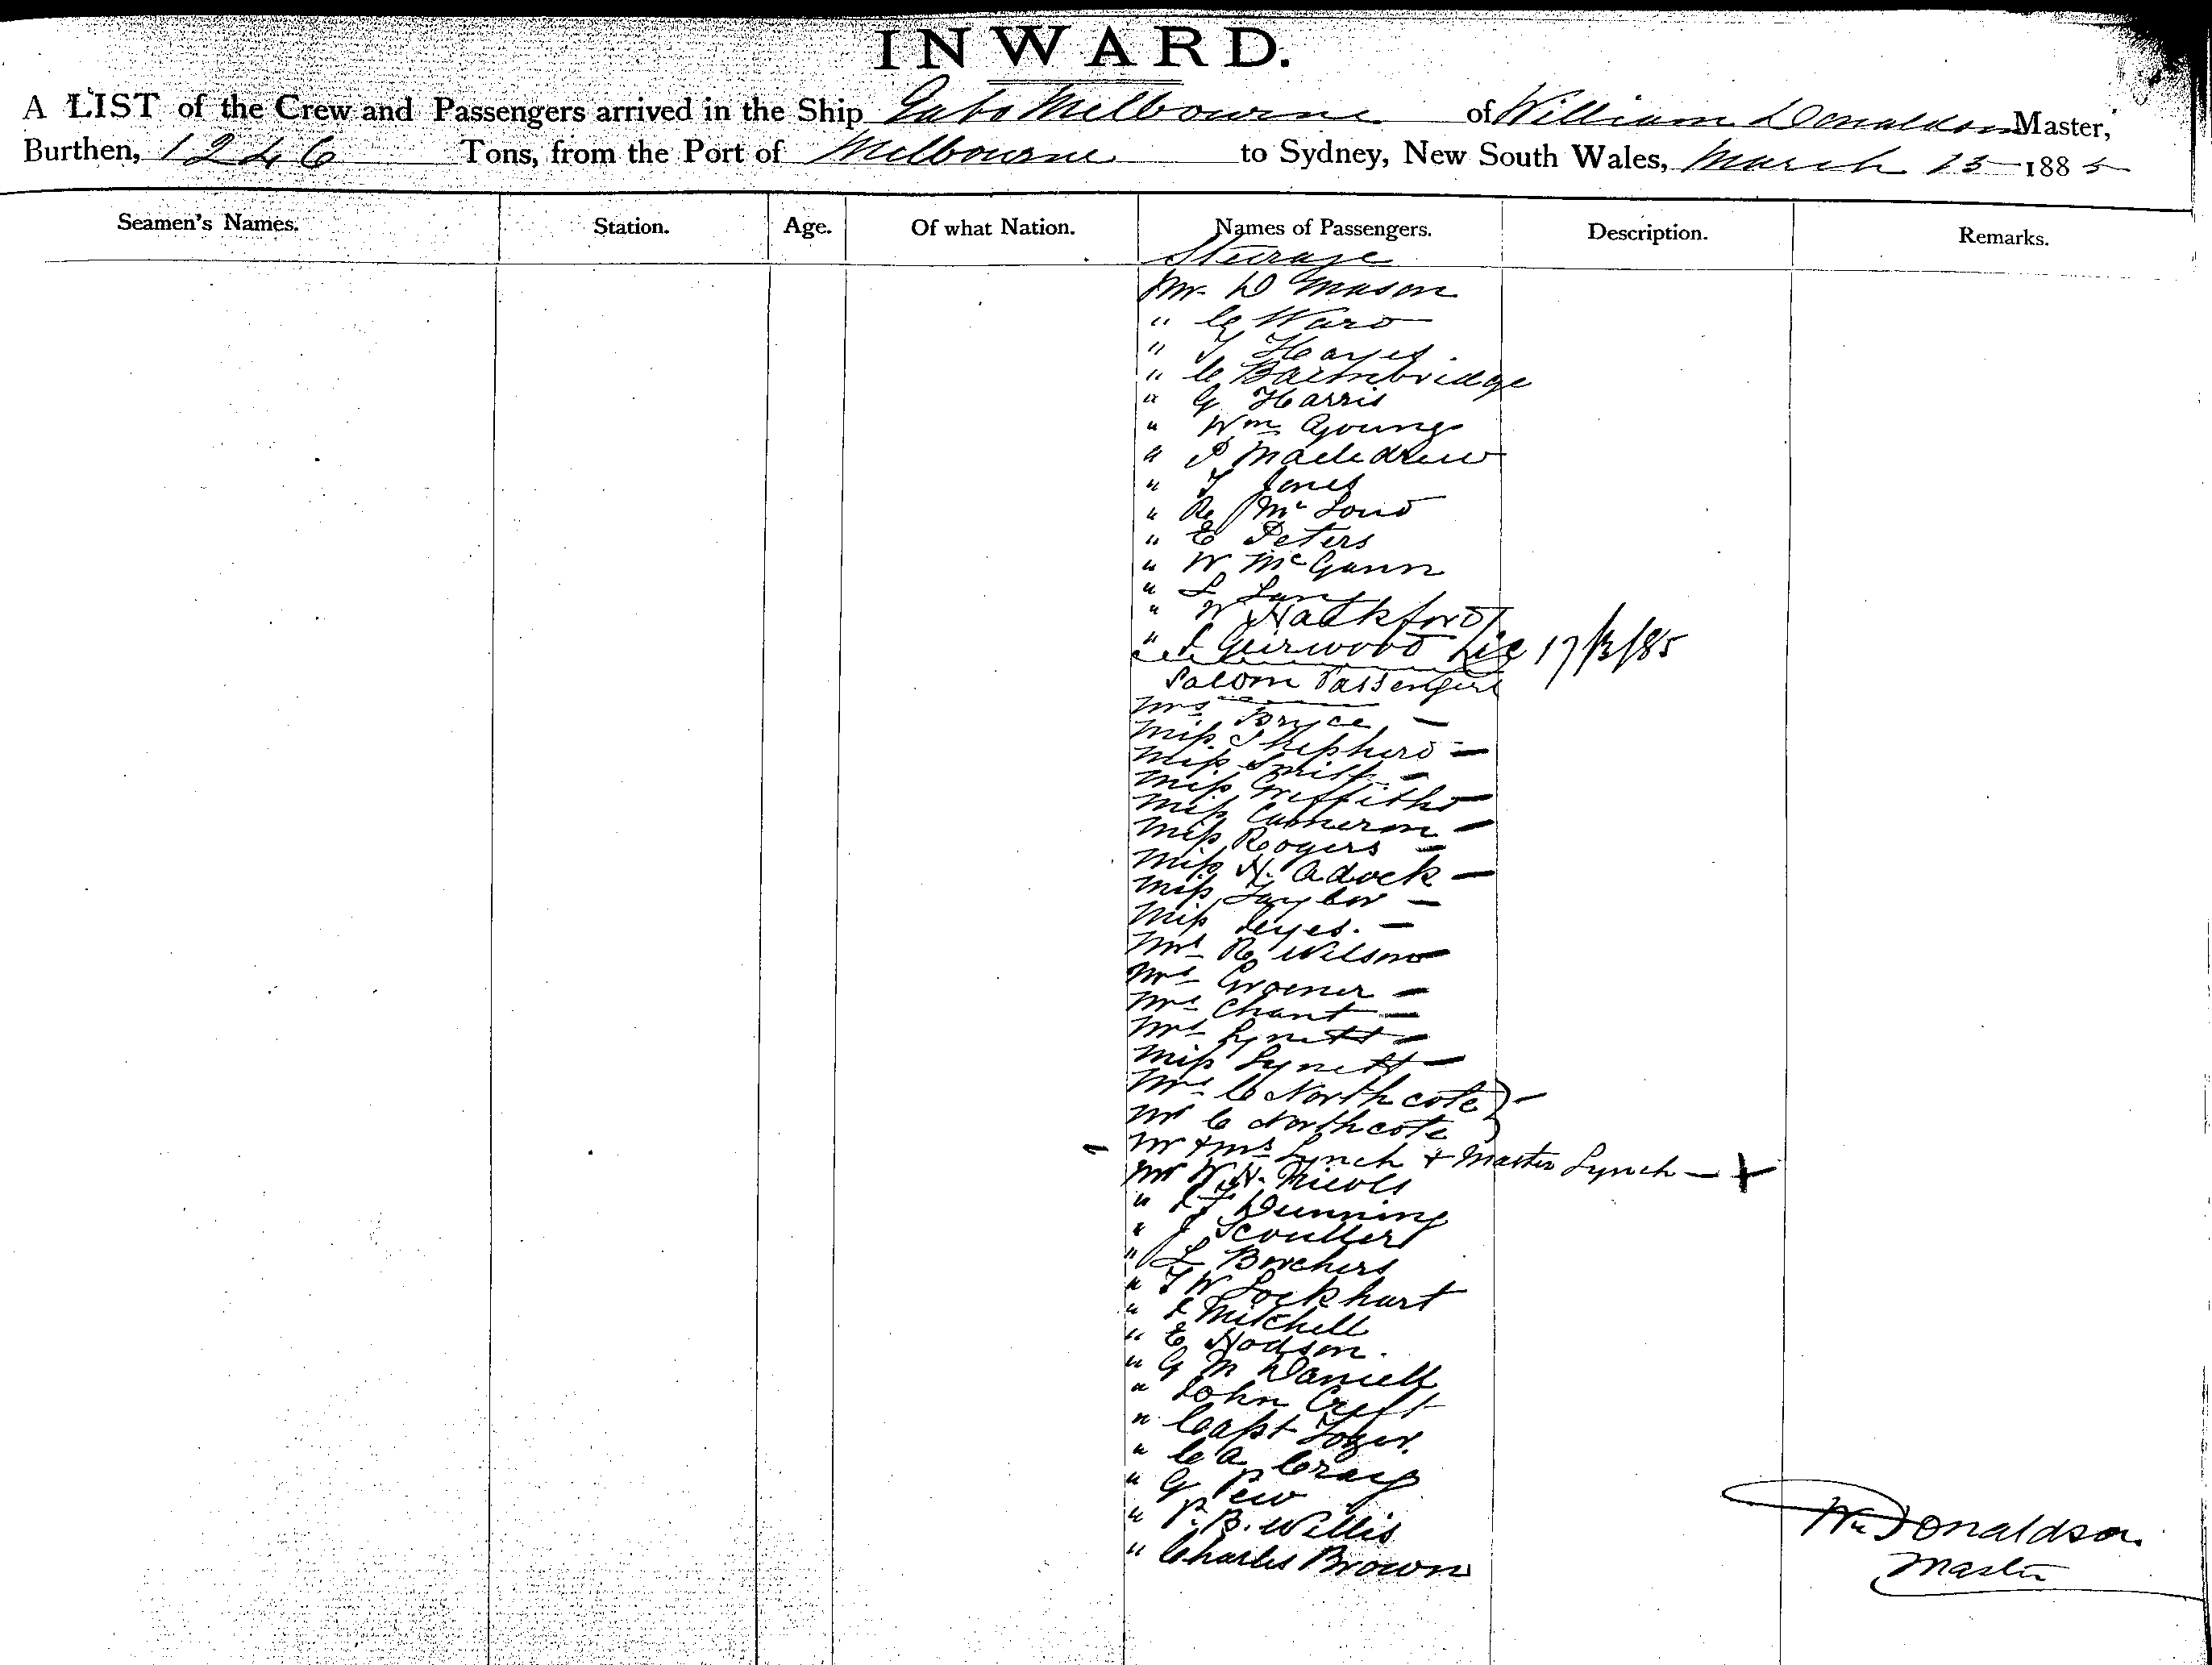 INWARD.
A LIST of the Crew and Passengers arrived in the Ship Gabo Melbourne of William Donaldson Master,
Burthen, 1246 Tons, from the Port of Melbourne to Sydney, New South Wales, March 15 1885
Seamen's Names. Station. Age. Of what Nation. Names of Passengers. Description. Remarks.
Steerage
Mr. D Mason
" C Ward
" T Hayes.
" C Bainbridge
" G Harris
" Wm Young
" P
" T Jones
" R
" E Peters
" W McGann
" L
" W
" J Girwood 17/3/85
Saloon Passengers
Mrs Bryce -
Miss Shepherd -
Miss Smith -
Miss Griffiths -
Miss Cameron -
Miss Rogers -
Miss H. Adock -
Miss Taylor -
Miss -
Mrs R Wilson
Mrs Groener -
Mrs Chant -
Mrs Lynett -
Miss Lynett -
Mrs C Northcote } -
Mr C Northcote
Mr + Mrs Lynch + Master Lynch - +
Mr W.H. Nicolls
" Dunning
" J Scoullers
" L Borchers
" T W Lockhart
" J Mitchell
" E Hodson.
" G M Daniell
" John Croft
" Capt Tozer.
" C A Craig
" G Pew
" P. B. Willis
" Charles Brown
Wm Donaldson.
Master